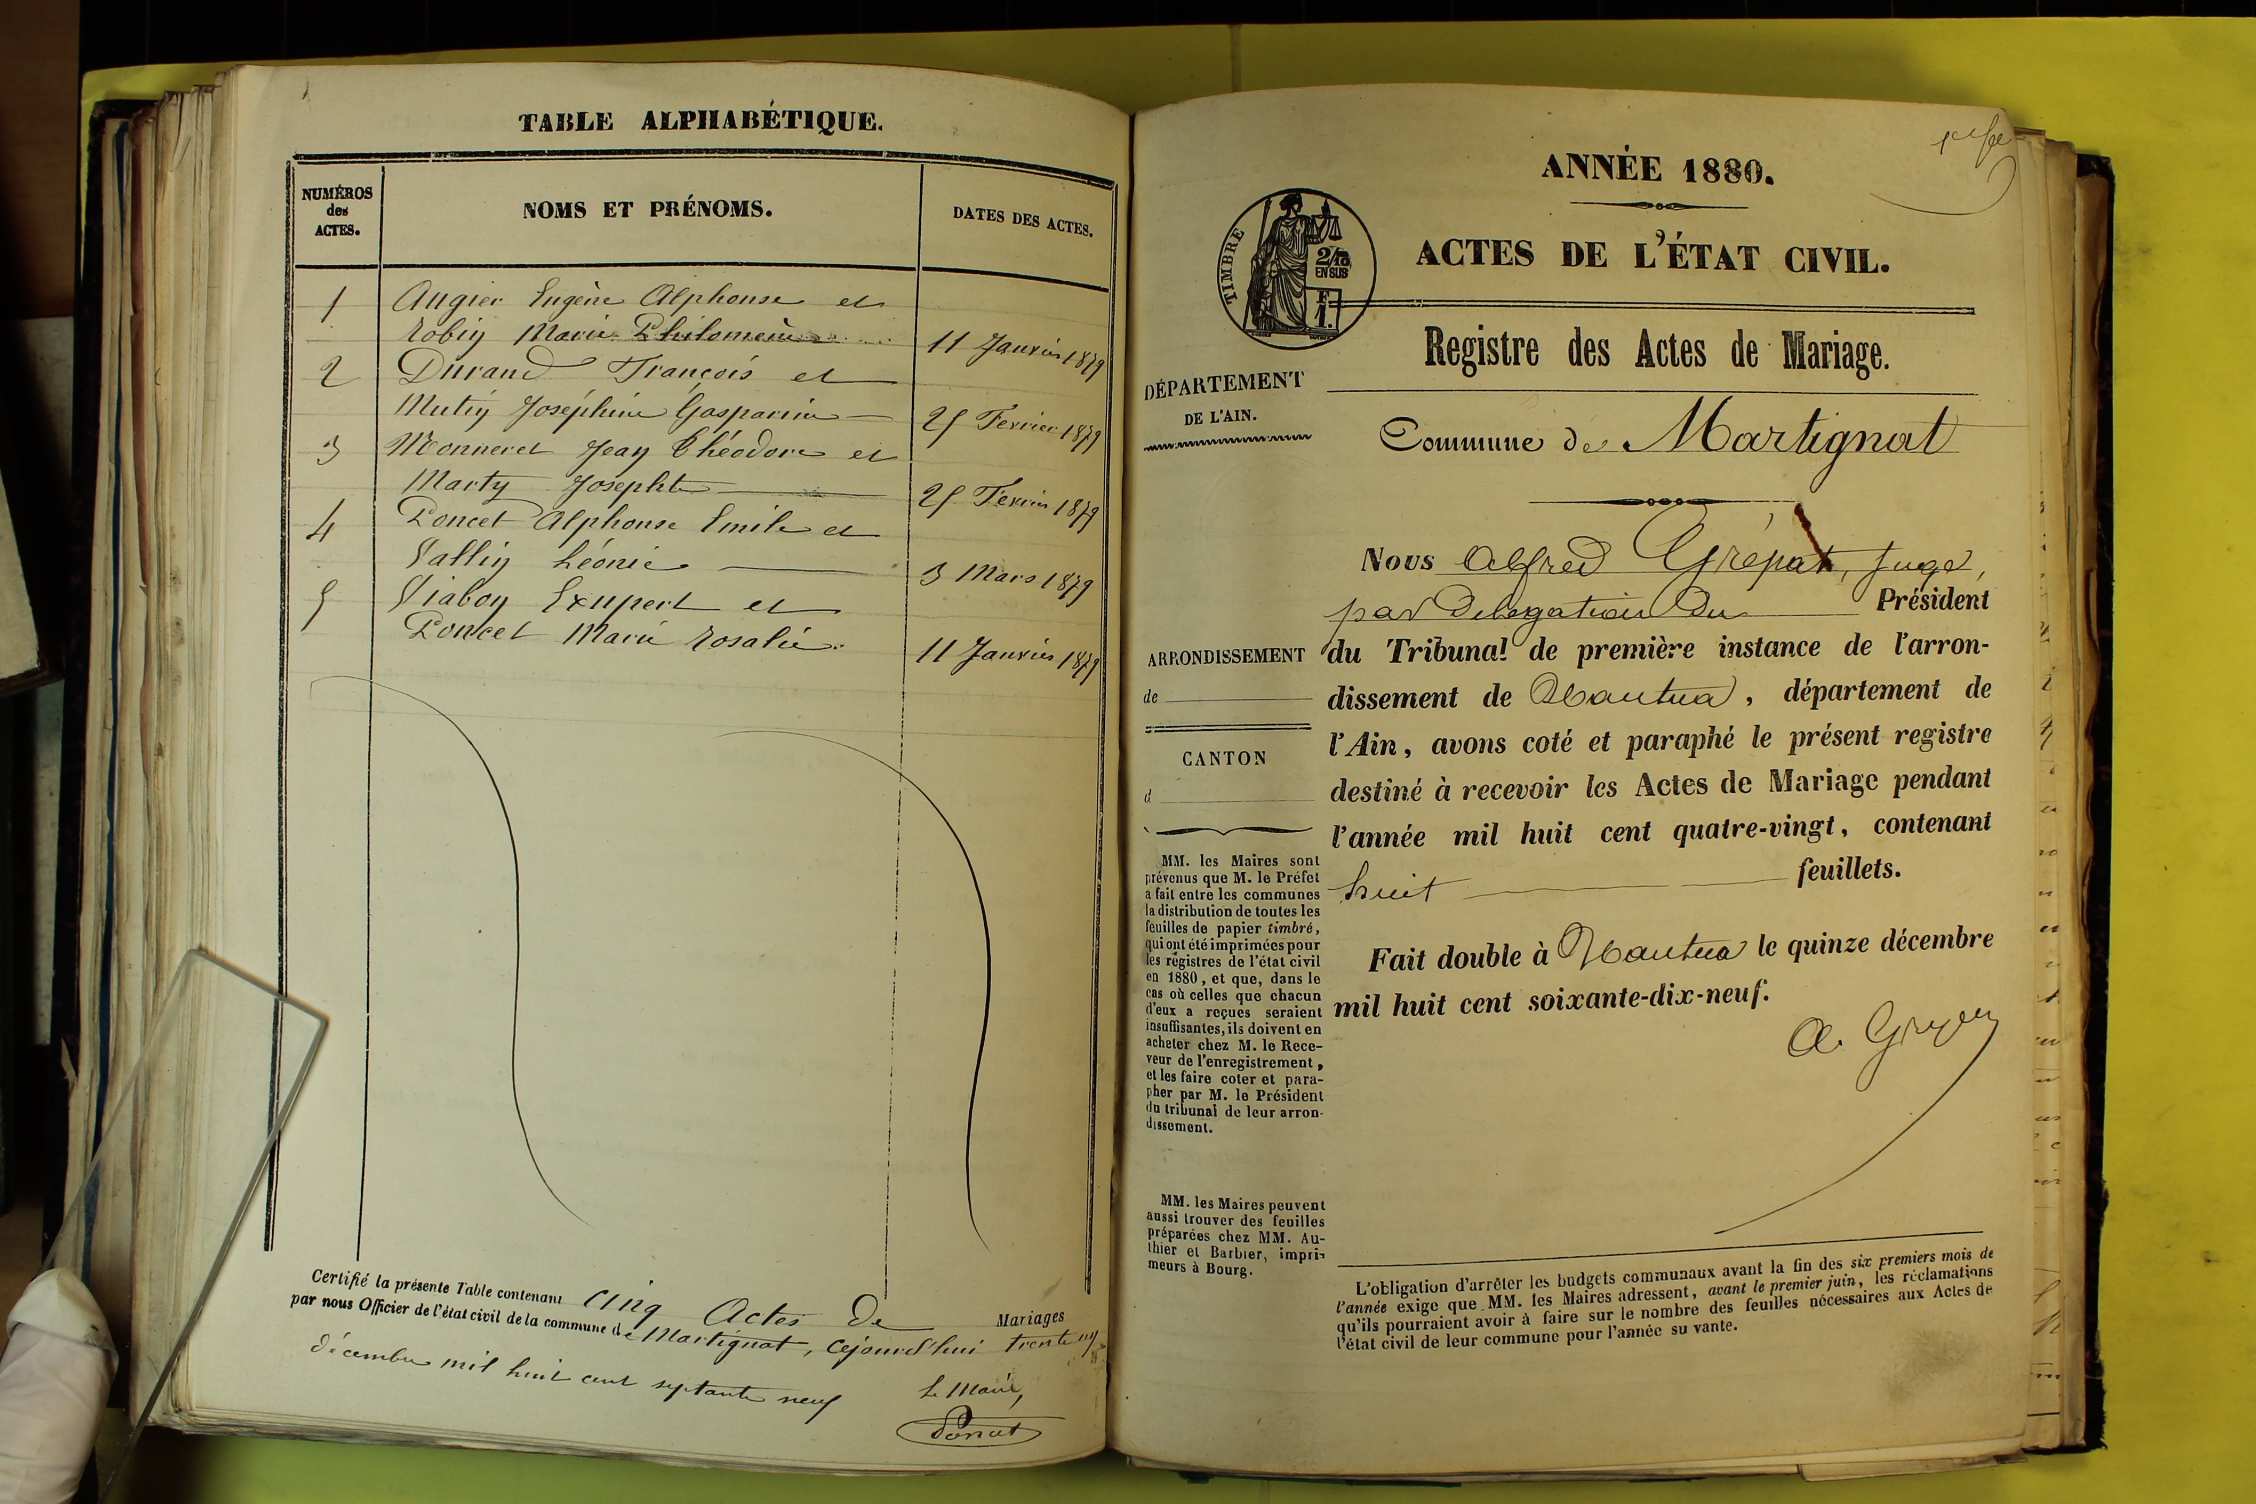 TABLE ALPHABÉTIQUE.
NUMÉROS
des
ACTES.
NOMS ET PRÉNOMS.
DATES DES ACTES.
1 Augier Eugène Alphonse et
Robin Marie Philomène 11 Janvier 1879
2 Durand François et
Mutin Joséphine Gasparine 25 Fevrier 1879
3 Monneret Jean Théodore et
Marty Josephte 25 Fevrier 1879
4 Poncet Alphonse Emile et
Vallin Léonie 3 Mars 1879
5 Viabon Exupert et
Poncet Marie Rosalie 11 Janvier 1879
Certifié la présente Table contenant cinq Actes de Mariages
par nous Officier de l'état civil de la commune de Martignat, cejourd'hui trente un
décembre mil huit cent septante neuf
Le Maire,
ANNÉE 1880.
ACTES DE L'ÉTAT CIVIL.
TIMBRE
2/10
EN SUS
F
1.
Registre des Actes de Mariage.
DÉPARTEMENT
DE L'AIN.
Commune de Martignat
Nous Alfred Grépat, Juge,
par délégation du Président
du Tribunal de première instance de l'arron-
dissement de Nantua, département de
l'Ain, avons coté et paraphé le présent registre
destiné à recevoir les Actes de Mariage pendant
l'année mil huit cent quatre-vingt, contenant
huit feuillets.
Fait double à Nantua le quinze décembre
mil huit cent soixante-dix-neuf.
ARRONDISSEMENT
de
CANTON
d
MM. les Maires sont
prévenus que M. le Préfet
a fait entre les communes
la distribution de toutes les
feuilles de papier timbré,
qui ont été imprimées pour
les régistres de l'état civil
en 1880, et que, dans le
cas où celles que chacun
d'eux a reçues seraient
insuffisantes, ils doivent en
acheter chez M. le Rece-
veur de l'enregistrement,
et les faire coter et para-
pher par M. le Président
du tribunal de leur arron-
dissement.
MM. les Maires peuvent
aussi trouver des feuilles
préparées chez MM. Au-
thier et Barbier, impri-
meurs à Bourg.
L'obligation d'arrêter les budgets communaux avant la fin des six premiers mois de
l'année exige que MM. les Maires adressent, avant le premier juin, les réclamations
qu'ils pourraient avoir à faire sur le nombre des feuilles nécessaires aux Actes de
l'état civil de leur commune pour l'année su vante.